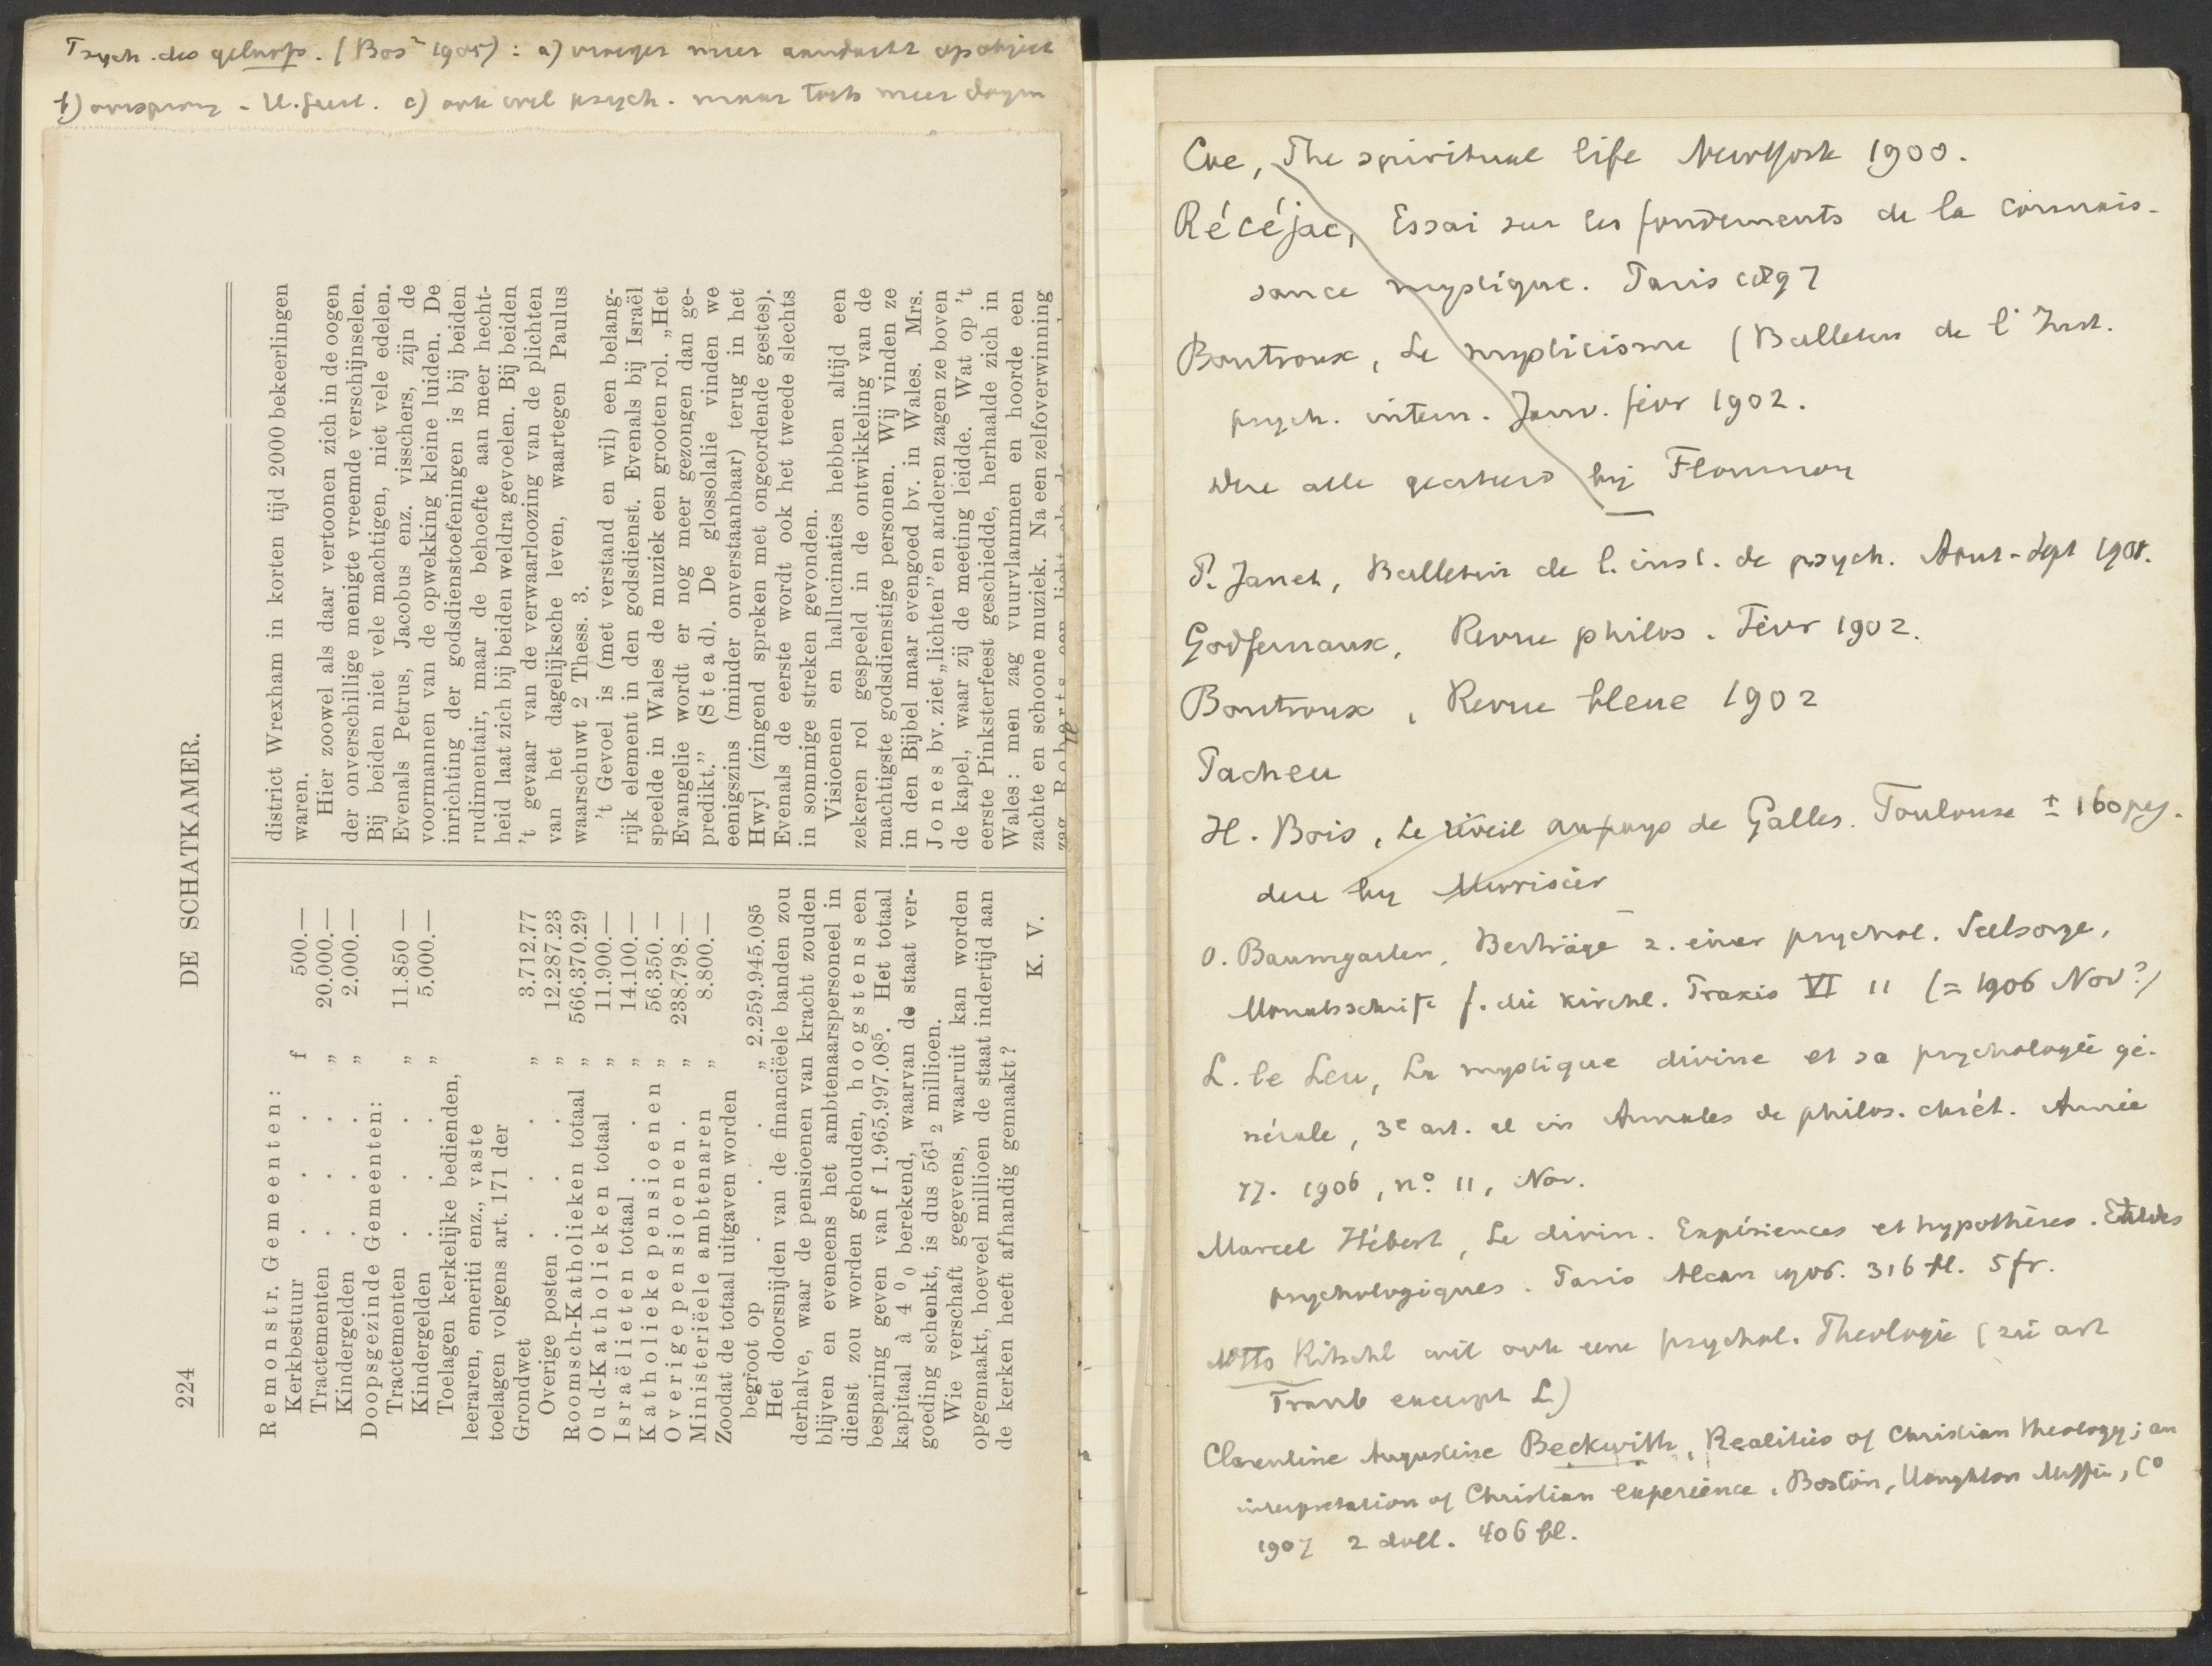 Psych. des geloofs. (Bos² 1905): a) vroeger meer aandacht op object
b) oorsprong - H. Geest. c) ook wel psych. maar toch meer dogm
224 DE SCHATKAMER.
Remonstr. Gemeenten:
Kerkbestuur . . . f 500.—
Tractementen . . . „ 20.000.—
Kindergelden . . . „ 2.000.—
Doopsgezinde Gemeenten:
Tractementen . . . „ 11.850 —
Kindergelden . . . „ 5.000.—
Toelagen kerkelijke bedienden,
leeraren, emeriti enz., vaste
toelagen volgens art. 171 der
Grondwet . . . „ 3.712.77
Overige posten . . . „ 12.287.23
Roomsch-Katholieken totaal „ 566.370.29
Oud-Katholieken totaal „ 11.900.—
Israëlieten totaal . . . „ 14.100.—
Katholieke pensioenen „ 56.350.—
Overige pensioenen . „ 238.798.—
Ministeriëele ambtenaren „ 8.800.—
Zoodat de totaal uitgaven worden
begroot op . . . „ 2.259.945.08⁵
Het doorsnijden van de financiëele banden zou
derhalve, waar de pensioenen van kracht zouden
blijven en eveneens het ambtenaarspersoneel in
dienst zou worden gehouden, hoogstens een
besparing geven van f 1.965.997.08⁵. Het totaal
kapitaal à 4 % berekend, waarvan de staat ver-
goeding schenkt, is dus 56½ millioen.
Wie verschaft gegevens, waaruit kan worden
opgemaakt, hoeveel millioen de staat indertijd aan
de kerken heeft afhandig gemaakt?
K. V.
district Wrexham in korten tijd 2000 bekeerlingen
waren.
Hier zoowel als daar vertoonen zich in de oogen
der onverschillige menigte vreemde verschijnselen.
Bij beiden niet vele machtigen, niet vele edelen.
Evenals Petrus, Jacobus enz. visschers, zijn de
voormannen van de opwekking kleine luiden. De
inrichting der godsdienstoefeningen is bij beiden
rudimentair, maar de behoefte aan meer hecht-
heid laat zich bij beiden weldra gevoelen. Bij beiden
't gevaar van de verwaarloozing van de plichten
van het dagelijksche leven, waartegen Paulus
waarschuwt 2 Thess. 3.
't Gevoel is (met verstand en wil) een belang-
rijk element in den godsdienst. Evenals bij Israël
speelde in Wales de muziek een grooten rol. „Het
Evangelie wordt er nog meer gezongen dan ge-
predikt.” (Stead). De glossolalie vinden we
eenigszins (minder onverstaanbaar) terug in het
Hwyl (zingend spreken met ongeordende gestes).
Evenals de eerste wordt ook het tweede slechts
in sommige streken gevonden.
Visioenen en hallucinaties hebben altijd een
zekeren rol gespeeld in de ontwikkeling van de
machtigste godsdienstige personen. Wij vinden ze
in den Bijbel maar evengoed bv. in Wales. Mrs.
Jones bv. ziet „lichten” en anderen zagen ze boven
de kapel, waar zij de meeting leidde. Wat op 't
eerste Pinksterfeest geschiedde, herhaalde zich in
Wales: men zag vuurvlammen en hoorde een
zachte en schoone muziek. Na een zelfoverwinning
zag Roberts een licht
Coe, The spiritual life New York 1900.
Récéjac, Essai sur les fondements de la connais-
sance mystique. Paris 1897
Boutroux, Le mysticisme (Bulletin de l'Inst.
psych. intern. Janv. févr 1902.
deze alle geciteerd bij Flournoy
P. Janet, Bulletin de l. inst. de psych. Aout-Sept 1901.
Godfernaux, Revue philos. Févr 1902.
Boutroux, Revue bleue 1902
Pacheu
H. Bois, Le réveil au pays de Galles. Toulouse ± 160 pag.
deze bij Murisier
O. Baumgarten, Beiträge z. einer psychol. Seelsorge,
Monatsschrift f. die kirchl. Praxis VI 11 (= 1906 Nov?)
L. le Leu, La mystique divine et sa psychologie gé-
nérale, 3e art. al in Annales de philos. chrét. Année
77. 1906, no. 11, Nov.
Marcel Hébert, Le divin. Expériences et hypothèses. Etudes
psychologiques. Paris Alcan 1906. 316 bl. 5 fr.
Otto Ritschl wil ook eene psychol. Theologie (zie art
Traub excerpt L)
Clarentine Augustine Beckwith, Realities of Christian theology; an
interpretation of Christian experience. Boston, Houghton Mifflin, Co
1907 2 doll. 406 bl.